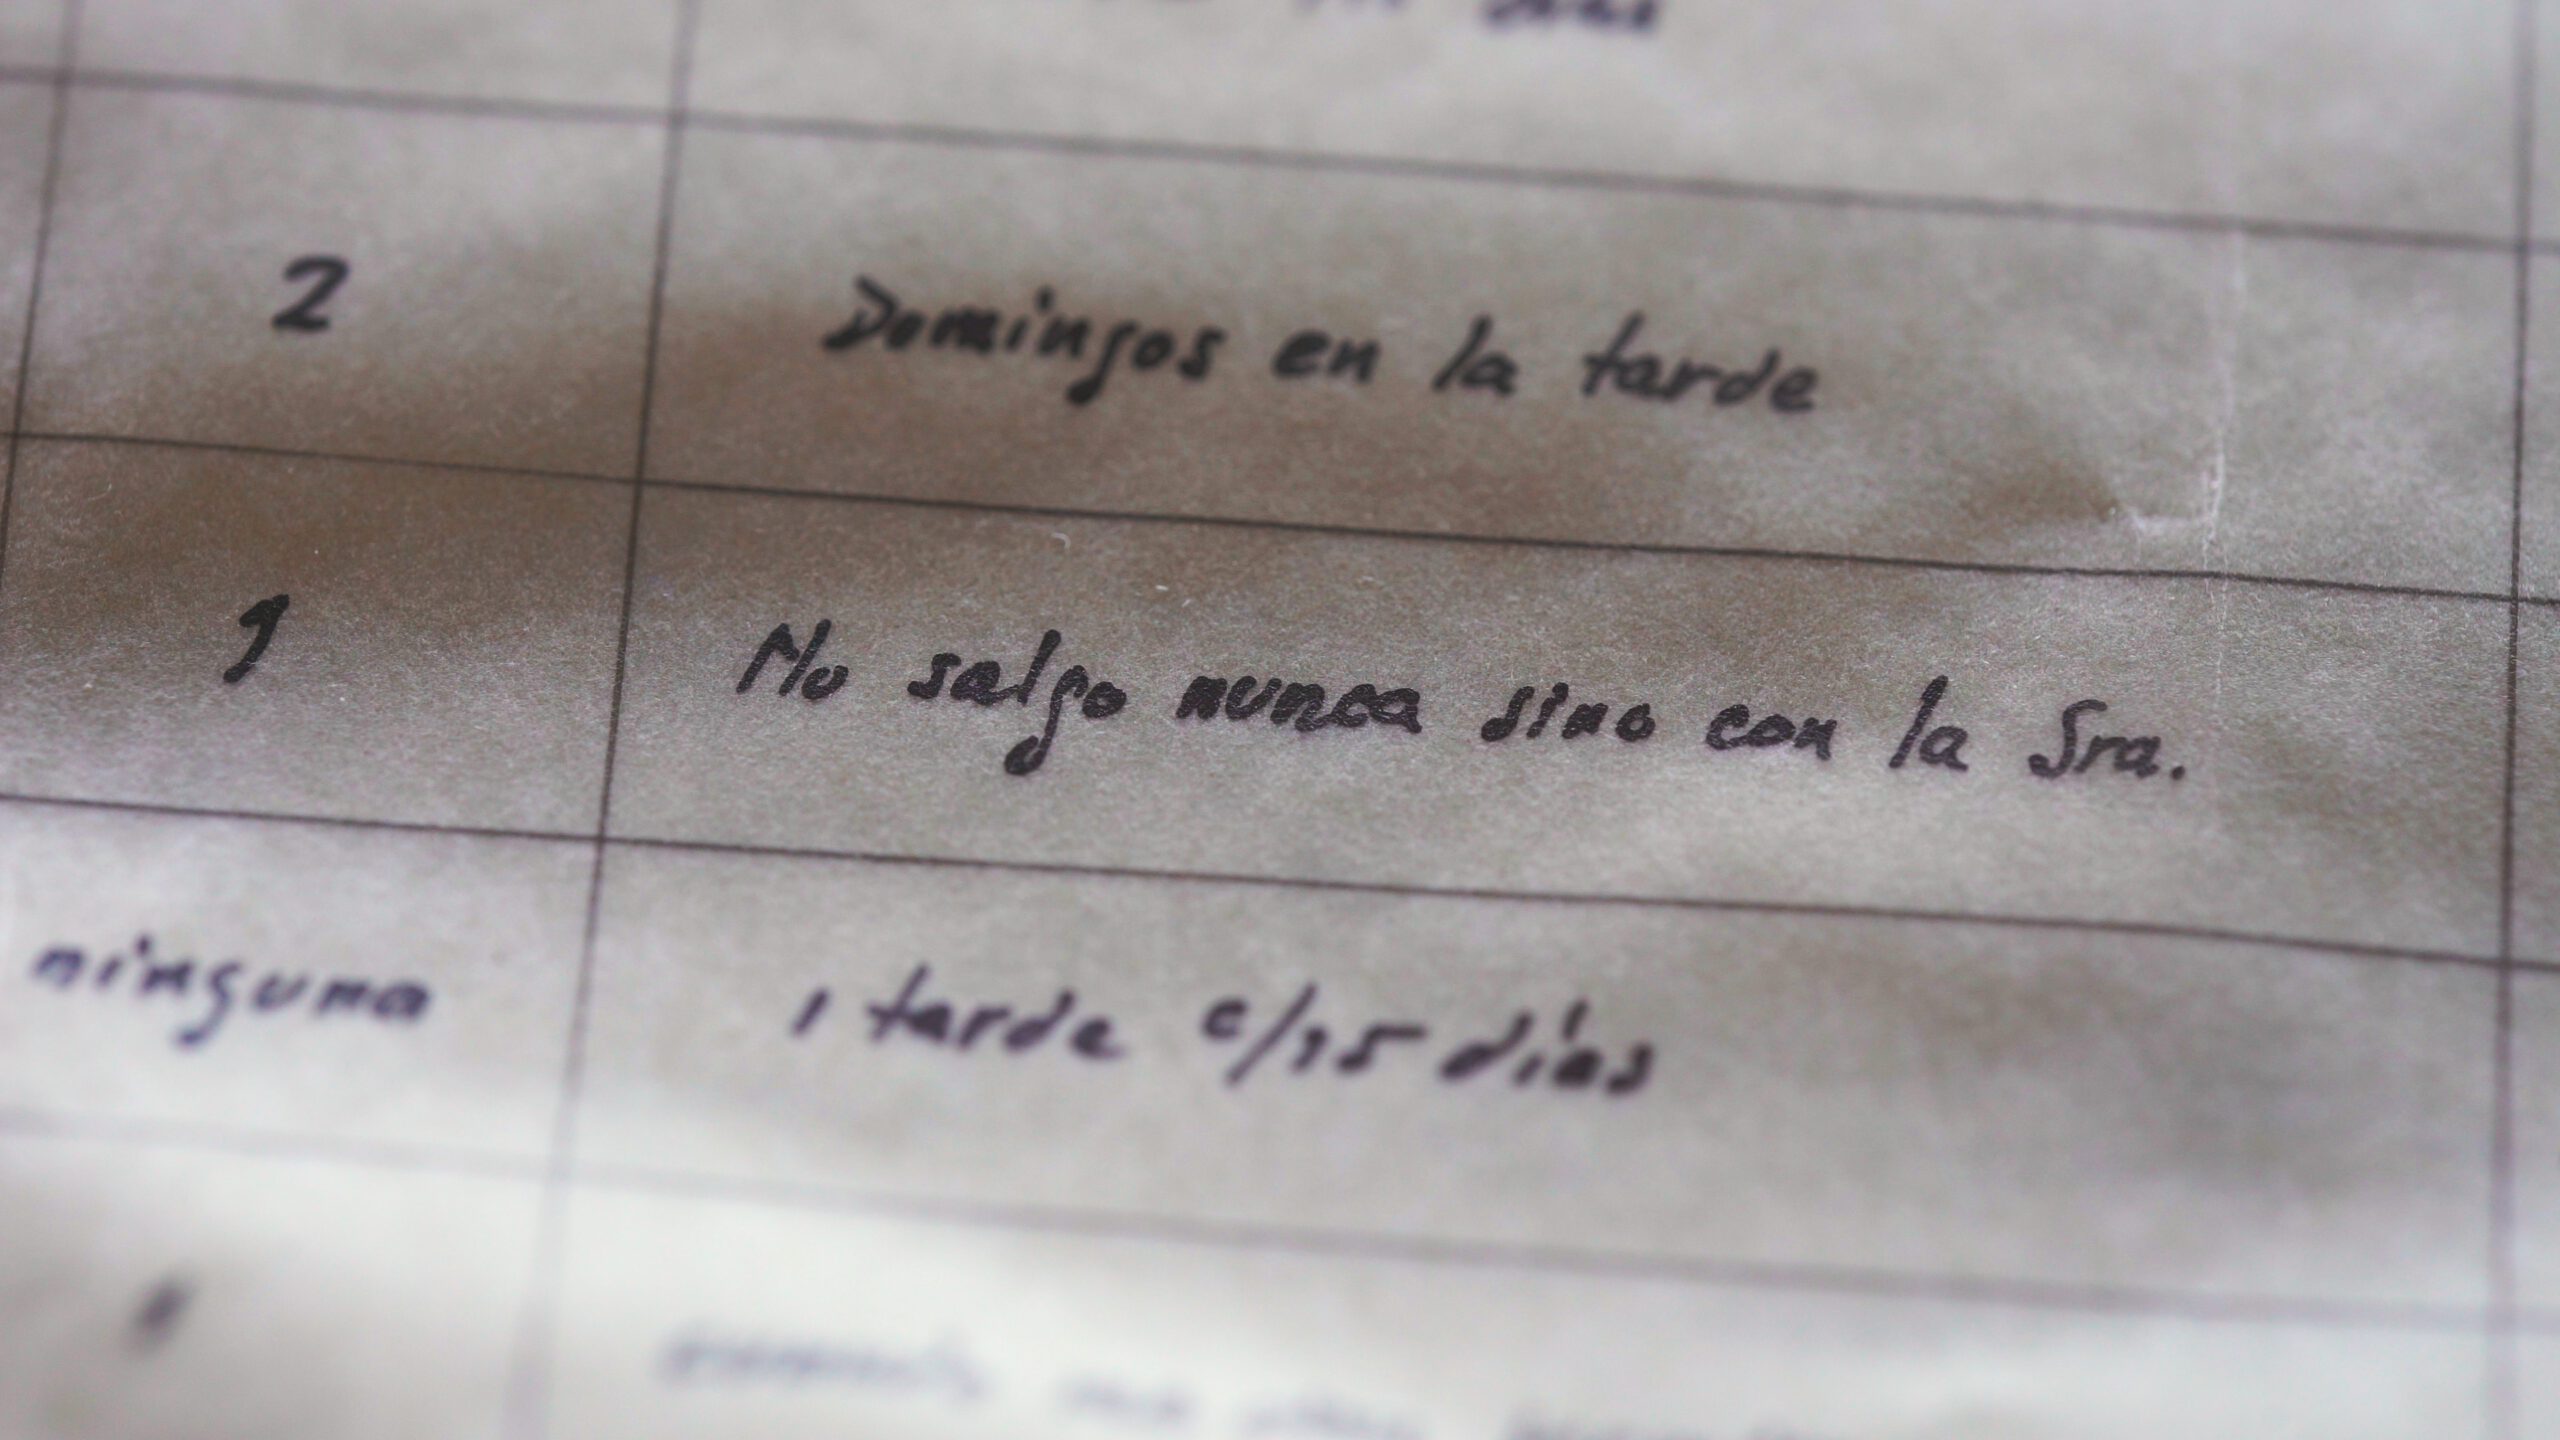 2 Domingos en la tarde
1 No salgo nunca sino con la Sra.
ninguna 1 tarde c/15 días